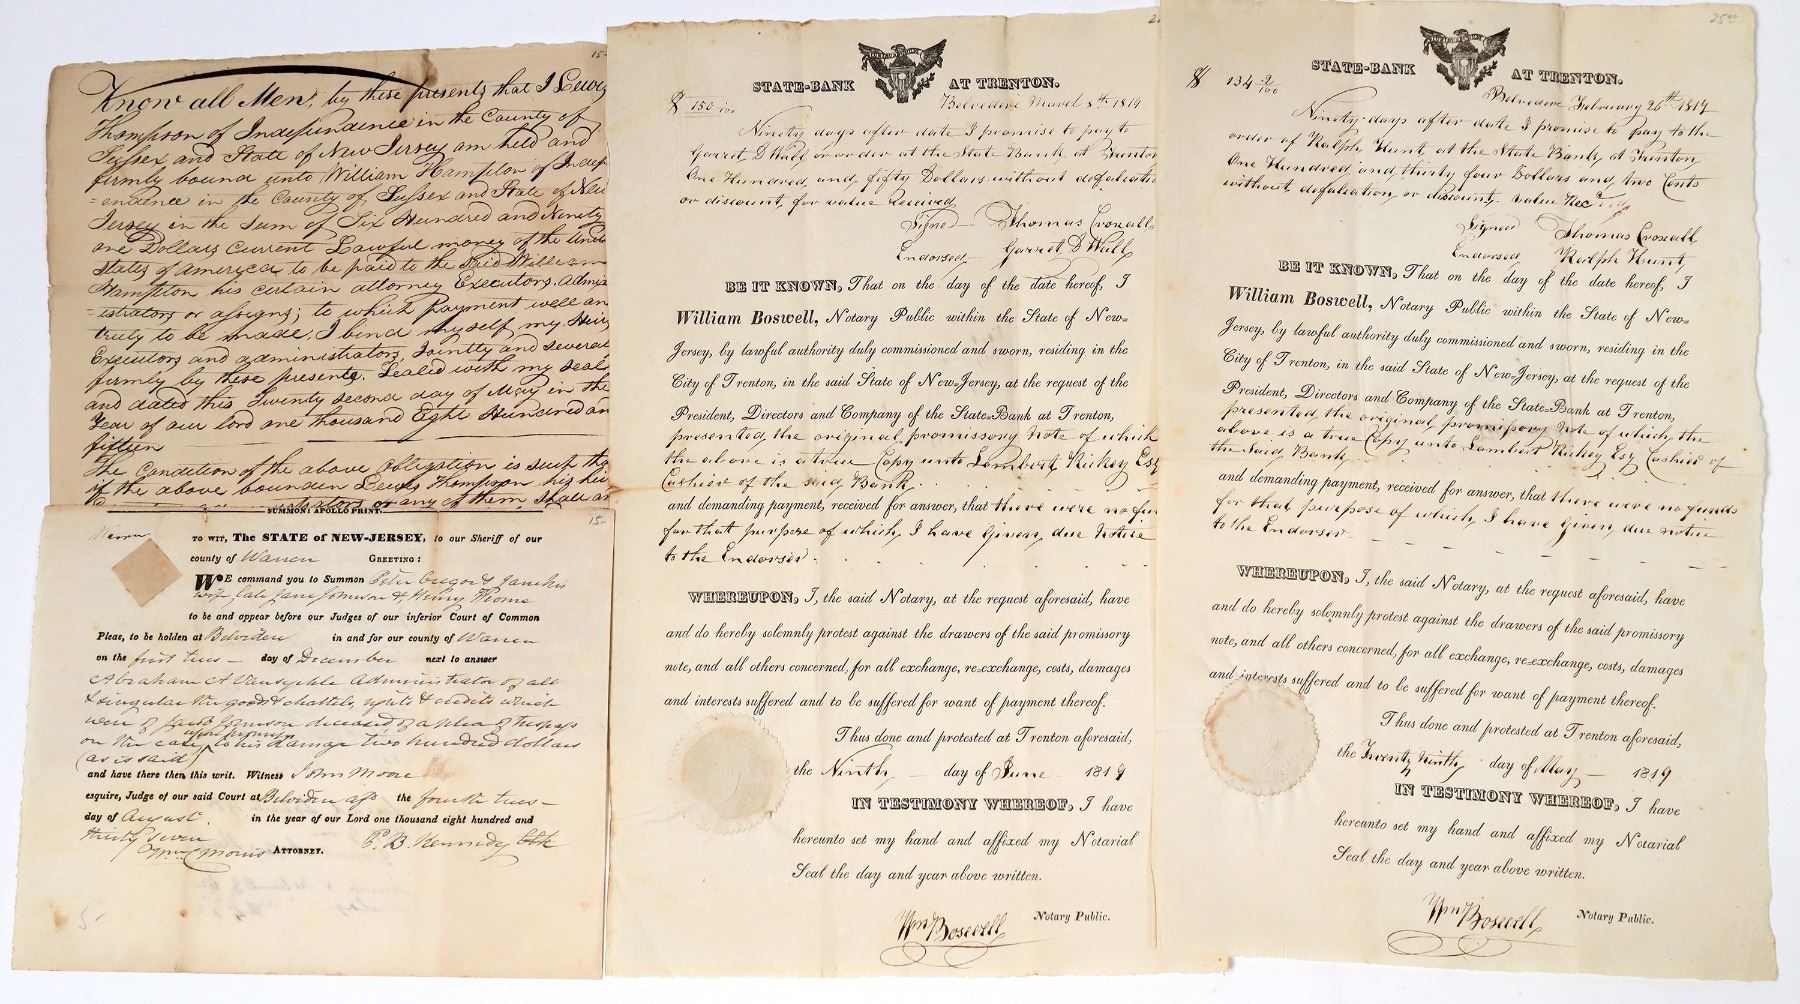 15-
Know all Men, by these presents that I Lewis
Thompson of Independence in the County of
Sussex and State of New Jersey am held and
firmly bound unto William Hampton of Indep
=endence in the County of Sussex and State of New
Jersey in the Sum of Six Hundred and Ninety
one Dollars Current Lawful money of the United
States of America to be paid to the said William
Hampton his certain attorney Executors Admin
=istrators or assigns; to which Payment well an
truly to be made, I bind myself, my Heirs
Executors and administrators, Jointly and several
firmly by these presents. Sealed with my seal
and dated this Twenty second day of May in the
Year of our lord one thousand Eight Hundred an
fifteen
The Condition of the above Obligation is such th
if the above bounden Lewis Thompson his hei
istrators or any of them, shall an
SUMMON: APOLLO PRINT.
15-
Warren
TO WIT, The STATE of NEW-JERSEY, to our Sheriff of our
county of Warren GREETING:
WE command you to Summon Peter Gregor & Jane his
wife, late Jane Johnson & Henry
to be and appear before our Judges of our inferior Court of Common
Pleas, to be holden at Belvidere in and for our county of Warren
on the first tues- day of December next to answer
Abraham Administrator of all
& singular the goods & chattels, rights & credits which
were of Johnson deceased of a plea of trespass
upon promises
on the case to his damage two hundred dollars
(as is said)
and have there then this writ. Witness John Moore
esquire, Judge of our said Court at Belvidere afs the fourth tues-
day of August in the year of our Lord one thousand eight hundred and
thirty seven
Wm C Morris ATTORNEY. P. B. Kennedy Clk
5-
STATE-BANK AT TRENTON.
$ 150 /100 Belvedere March 8th 1819
Ninety days after date I promise to pay to
Garret D Wall or order at the State Bank at Trenton
One Hundred, and, fifty Dollars without defalcation
or discount, for value received
Signed Thomas Croxall,
Endorsed, Garret D Wall,
BE IT KNOWN, That on the day of the date hereof, I
William Boswell, Notary Public within the State of New=
Jersey, by lawful authority duly commissioned and sworn, residing in the
City of Trenton, in the said State of New=Jersey, at the request of the
President, Directors and Company of the State=Bank at Trenton,
presented, the original promissory Note of which
the above is a true Copy unto Lambert Rickey Esq
Cashier of the said Bank.
and demanding payment, received for answer, that there were no fun
for that purpose of which, I have Given, due Notice
to the Endorser.
WHEREUPON, I, the said Notary, at the request aforesaid, have
and do hereby solemnly protest against the drawers of the said promissory
note, and all others concerned, for all exchange, re=exchange, costs, damages
and interests suffered and to be suffered for want of payment thereof.
Thus done and protested at Trenton aforesaid,
the Ninth day of June 1819
IN TESTIMONY WHEREOF, I have
hereunto set my hand and affixed my Notarial
Seal the day and year above written.
Wm Boswell, Notary Public.
25 00
STATE-BANK AT TRENTON.
$ 134 2/100
Belvedere February 26th 1819
Ninety days after date I promise to pay to the
order of Ralph Hunt, at the State Bank, at Trenton
One Hundred, and, thirty four Dollars and, two Cents
without defalcation, or discount, value Rec'd
Signed Thomas Croxall,
Endorsed, Ralph Hunt,
BE IT KNOWN, That on the day of the date hereof, I
William Boswell, Notary Public within the State of New=
Jersey, by lawful authority duly commissioned and sworn, residing in the
City of Trenton, in the said State of New=Jersey, at the request of the
President, Directors and Company of the State=Bank at Trenton,
presented, the original promissory Note of which, the
above is a true Copy unto Lambert Rickey Esq Cashier of
the Said, Bank
and demanding payment, received for answer, that there were no funds
for that purpose of which, I have given, due notice
to the Endorser
WHEREUPON, I, the said Notary, at the request aforesaid, have
and do hereby solemnly protest against the drawers of the said promissory
note, and all others concerned, for all exchange, re=exchange, costs, damages
and interests suffered and to be suffered for want of payment thereof.
Thus done and protested at Trenton aforesaid,
the Twenty Ninth day of May 1819
IN TESTIMONY WHEREOF, I have
hereunto set my hand and affixed my Notarial
Seal the day and year above written.
Wm Boswell, Notary Public.